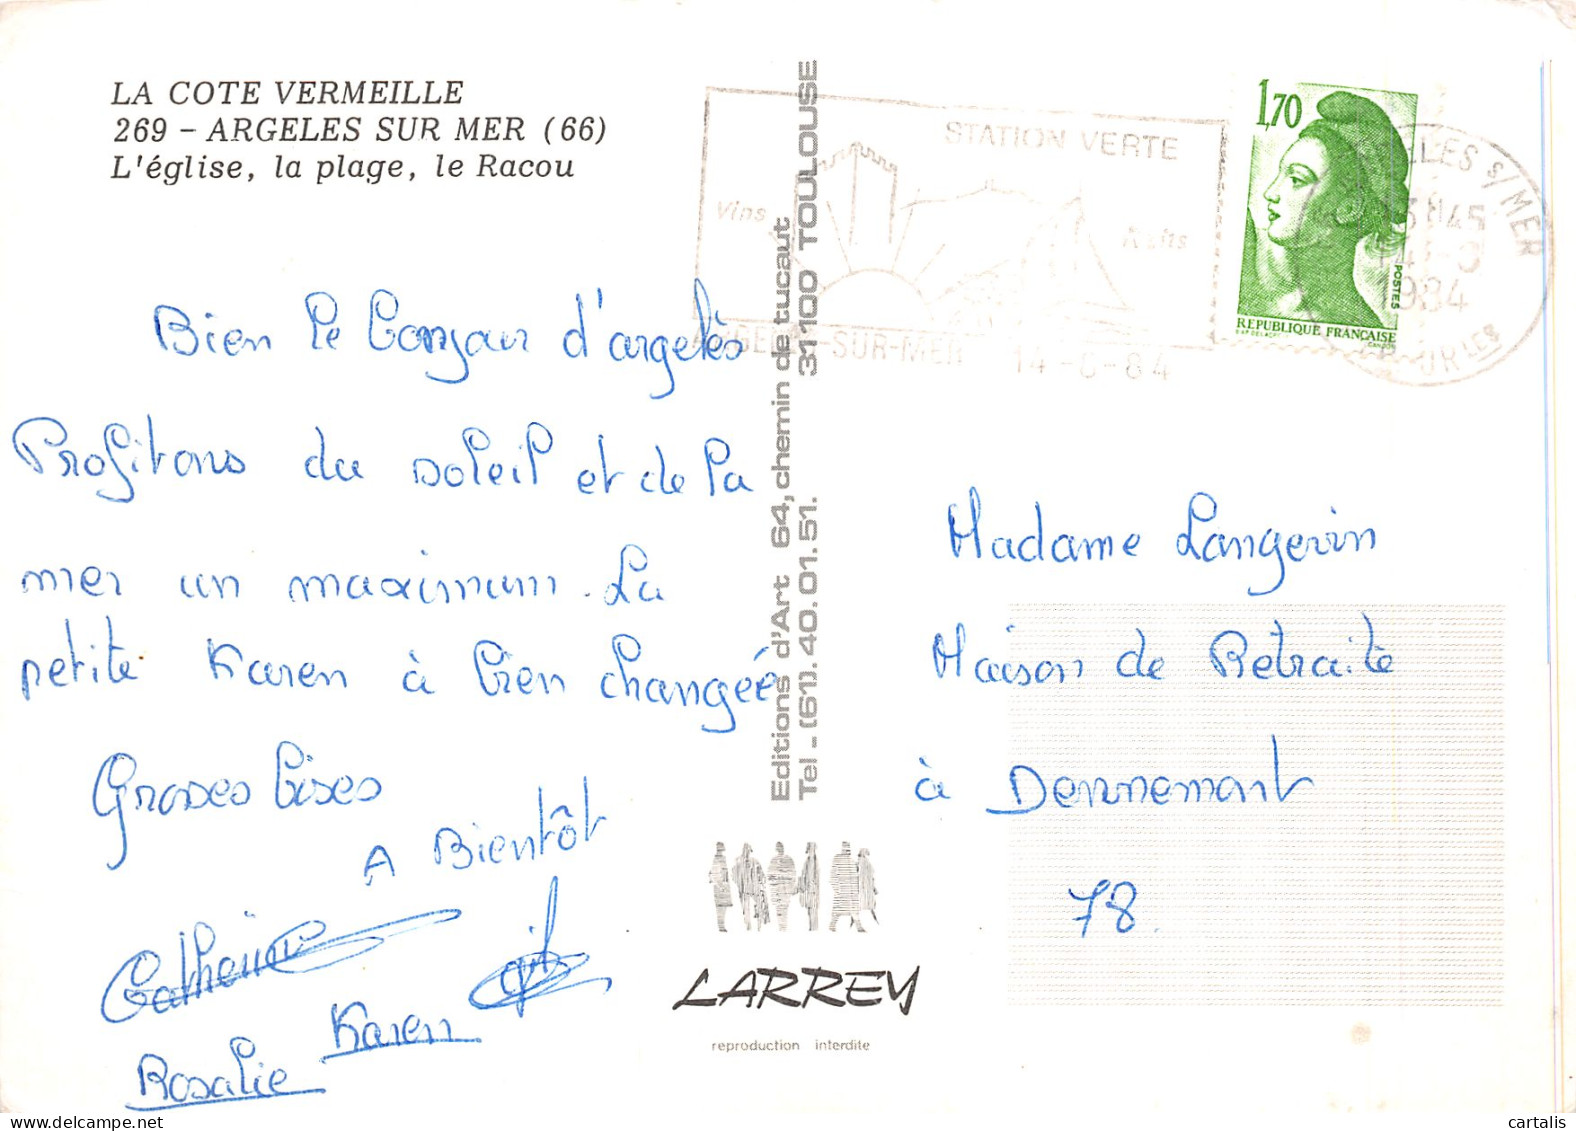 LA COTE VERMEILLE
269 - ARGELES SUR MER (66)
L'église, la plage, le Racou
Bien le bonjour d'argelès
Profitons du soleil et de la
mer un maximum. La
petite Karen à bien changéé
Grosses bises
A Bientôt
Catherine
Karen
Rosalie
Editions d'Art 64, chemin de tucaut
Tel - (61). 40.01.51. 31100 TOULOUSE
LARREY
reproduction interdite
STATION VERTE
Vins
ARGELES-SUR-MER 14-8-84
1,70
POSTES
REPUBLIQUE FRANÇAISE
S/MER
45
1984
Madame Langevin
Maison de Retraite
à Dennemont
78.
cartalis